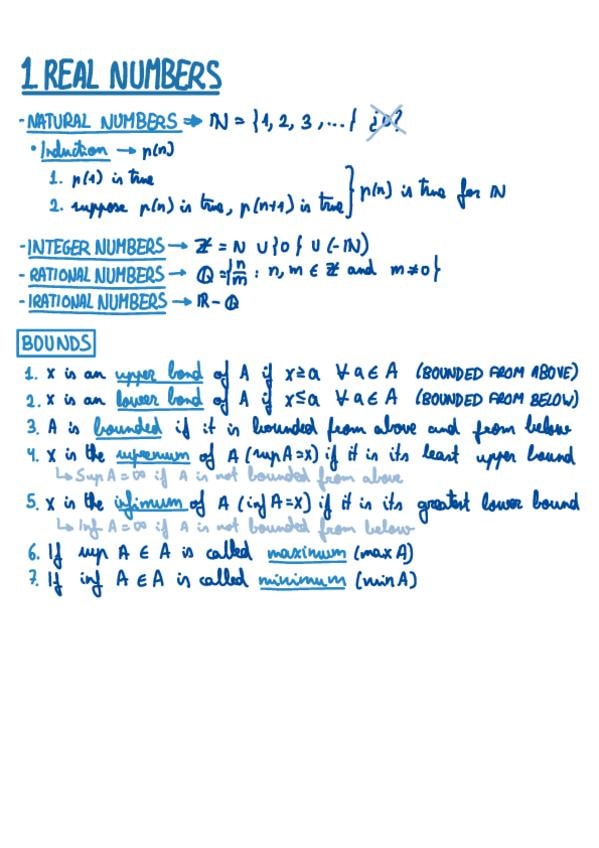 1. REAL NUMBERS
- NATURAL NUMBERS → ℕ = {1, 2, 3, ...} ¿0?
• Induction → p(n)
1. p(1) is true
2. suppose p(n) is true, p(n+1) is true } p(n) is true for ℕ
- INTEGER NUMBERS → ℤ = N ∪ {0} ∪ (-ℕ)
- RATIONAL NUMBERS → ℚ = {n/m : n, m ∈ ℤ and m ≠ 0}
- IRATIONAL NUMBERS → ℝ - ℚ
BOUNDS
1. x is an upper bond of A if x ≥ a ∀ a ∈ A (BOUNDED FROM ABOVE)
2. x is an lower bond of A if x ≤ a ∀ a ∈ A (BOUNDED FROM BELOW)
3. A is bounded if it is bounded from above and from below
4. x is the supremum of A (sup A = x) if it is its least upper bound
↳ Sup A = ∞ if A is not bounded from above
5. x is the infimum of A (inf A = x) if it is its greatest lower bound
↳ Inf A = ∞ if A is not bounded from below
6. If sup A ∈ A is called maximum (max A)
7. If inf A ∈ A is called minimum (min A)